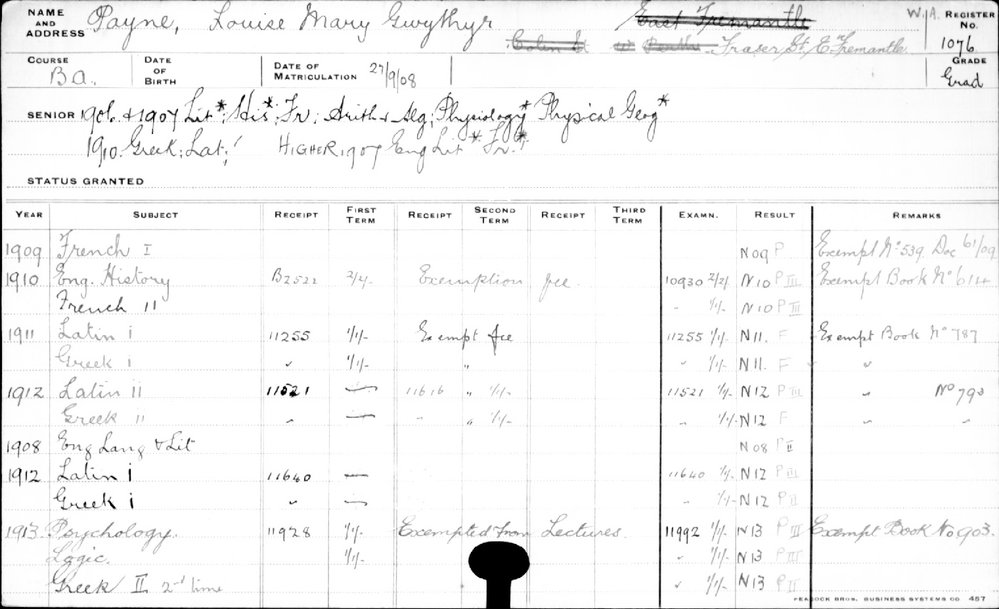 NAME AND ADDRESS Payne, Louise Mary Gwythyr East Fremantle W.A. REGISTER No.
Colin St W Perth Fraser St, E. Fremantle. 1076
COURSE B.A. DATE OF BIRTH DATE OF MATRICULATION 27/9/08 GRADE Grad
SENIOR 1906 & 1907 Lit*; His*; Fr; Arith & Alg; Physiology* Physical Geog*
1910. Greek; Lat; HIGHER 1907 Eng Lit* Fr.*
STATUS GRANTED
YEAR SUBJECT RECEIPT FIRST TERM RECEIPT SECOND TERM RECEIPT THIRD TERM EXAMN. RESULT REMARKS
1909 French I N09 P Exempt No 539. Doc 61/09
1910 Eng. History B2522 2/2/- Exemption fee 10930 2/2/- N10 P III Exempt Book No 614
French II " 1/1/- N10 P III
1911 Latin i 11255 1/1/- Exempt fee 11255 1/1/- N11. F Exempt Book No 787
Greek i " 1/1/- " " 1/1/- N11. F "
1912 Latin ii 11521 — 11616 " 1/1/- 11521 1/1/- N12 P III " No 793
Greek ii " — " 1/1/- " 1/1/- N12 F " "
1908 Eng Lang & Lit N08 P II
1912 Latin i 11640 — 11640 1/1/- N12 P III
Greek i " — " 1/1/- N12 P II
1913 Psychology. 11928 1/1/- Exempted from Lectures. 11992 1/1/- N13 P III Exempt Book No 903.
Logic. 1/1/- " 1/1/- N13 P III
Greek II 2nd time " 1/1/- N13 P II
PEACOCK BROS. BUSINESS SYSTEMS CO. 457